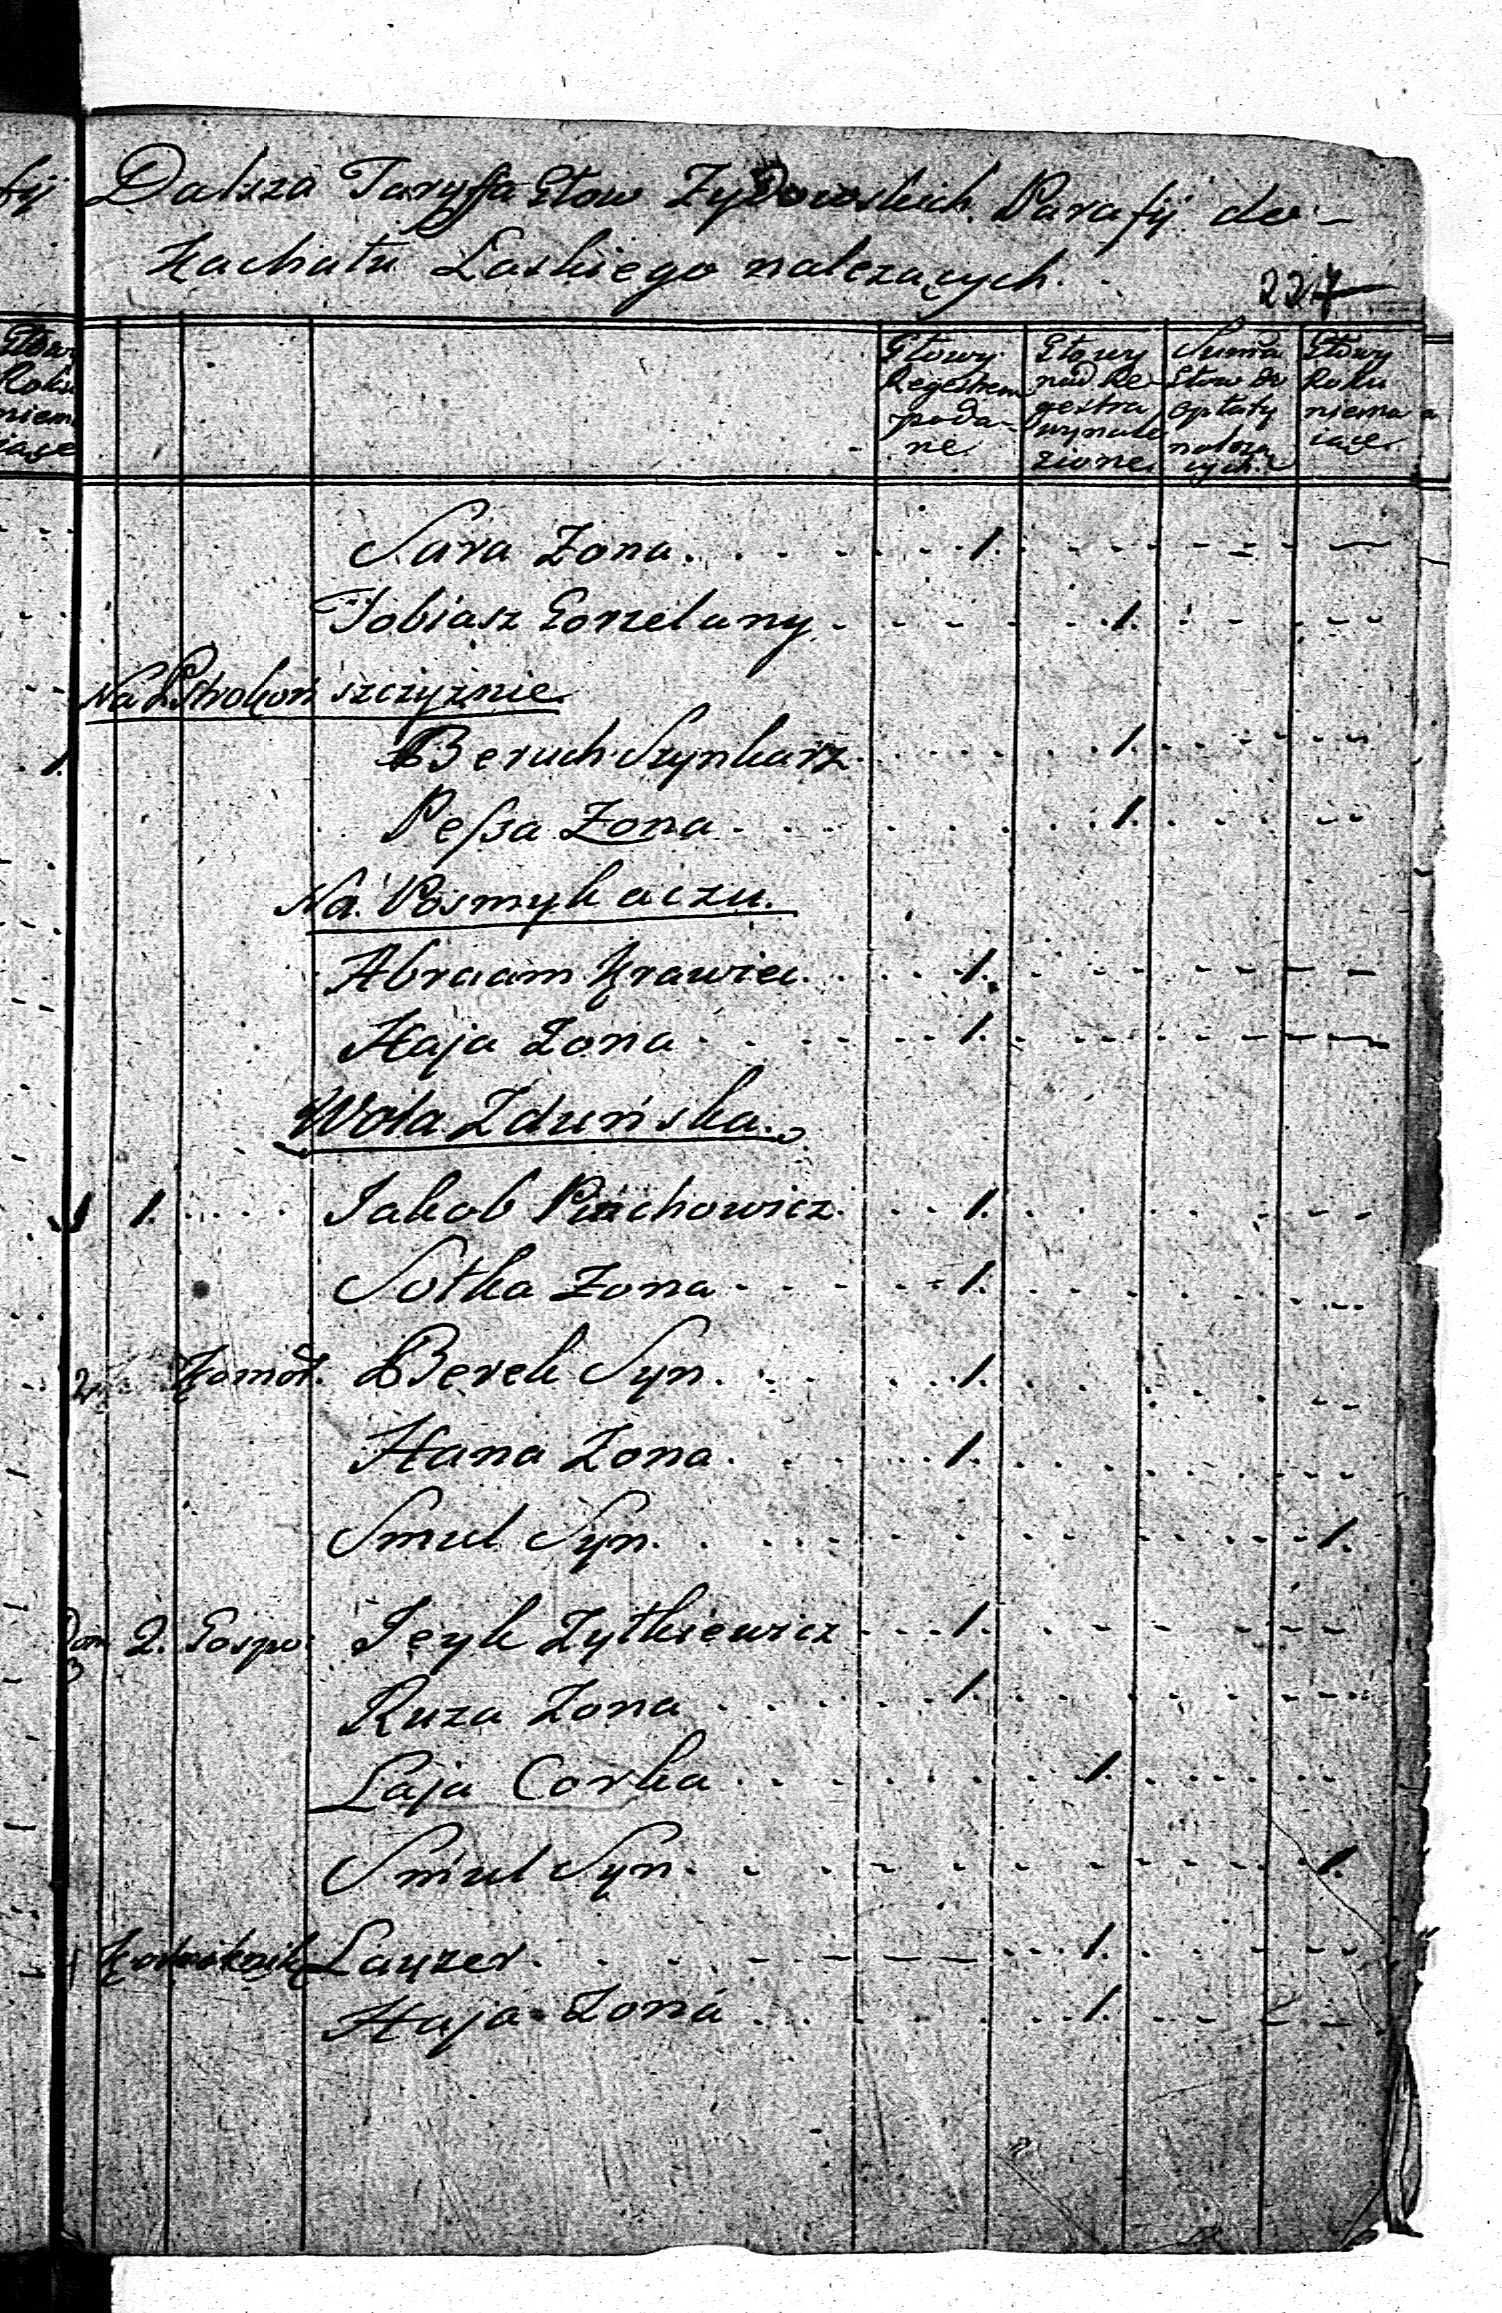 Dalsza Taryffa Głow Zydowskich Parafij do
Kachału Laskiego nalezących.
227
Głowy Regestrem poda- ne
Głowy nad Re- gestra wynale zione
Summa Głow do opłaty należą cych
Głowy Roku niema iące
Sara Zona . . . . 1. . . . .
Tobiasz Gorzelany . . . . 1. . . . .
Na Pstrokoń szczyznie
Beruch Szynkarz . . . . 1. . . . .
Peßa Zona . . . . 1. . . . .
Na Posmykaczu.
Abraam Krawiec . . . . 1. . . . .
Haja Zona . . . . 1. . . . .
Wola Zduńska.
1. . . . . Jakob Pinchowicz . . . 1. . . . .
Sotka Zona . . . . 1. . . . .
2 Komor. Berek Syn . . . . 1. . . . .
Hana Zona . . . . 1. . . . .
Smul Syn . . . . 1.
2. Gospo: Jeyk Zytkiewicz . . . 1. . . . .
Ruza Zona . . . . 1. . . . .
Laja Corka . . . . 1. . . . .
Smul Syn . . . . 1.
Layzer . . . . 1. . . . .
Haja Zona . . . . 1. . . . .